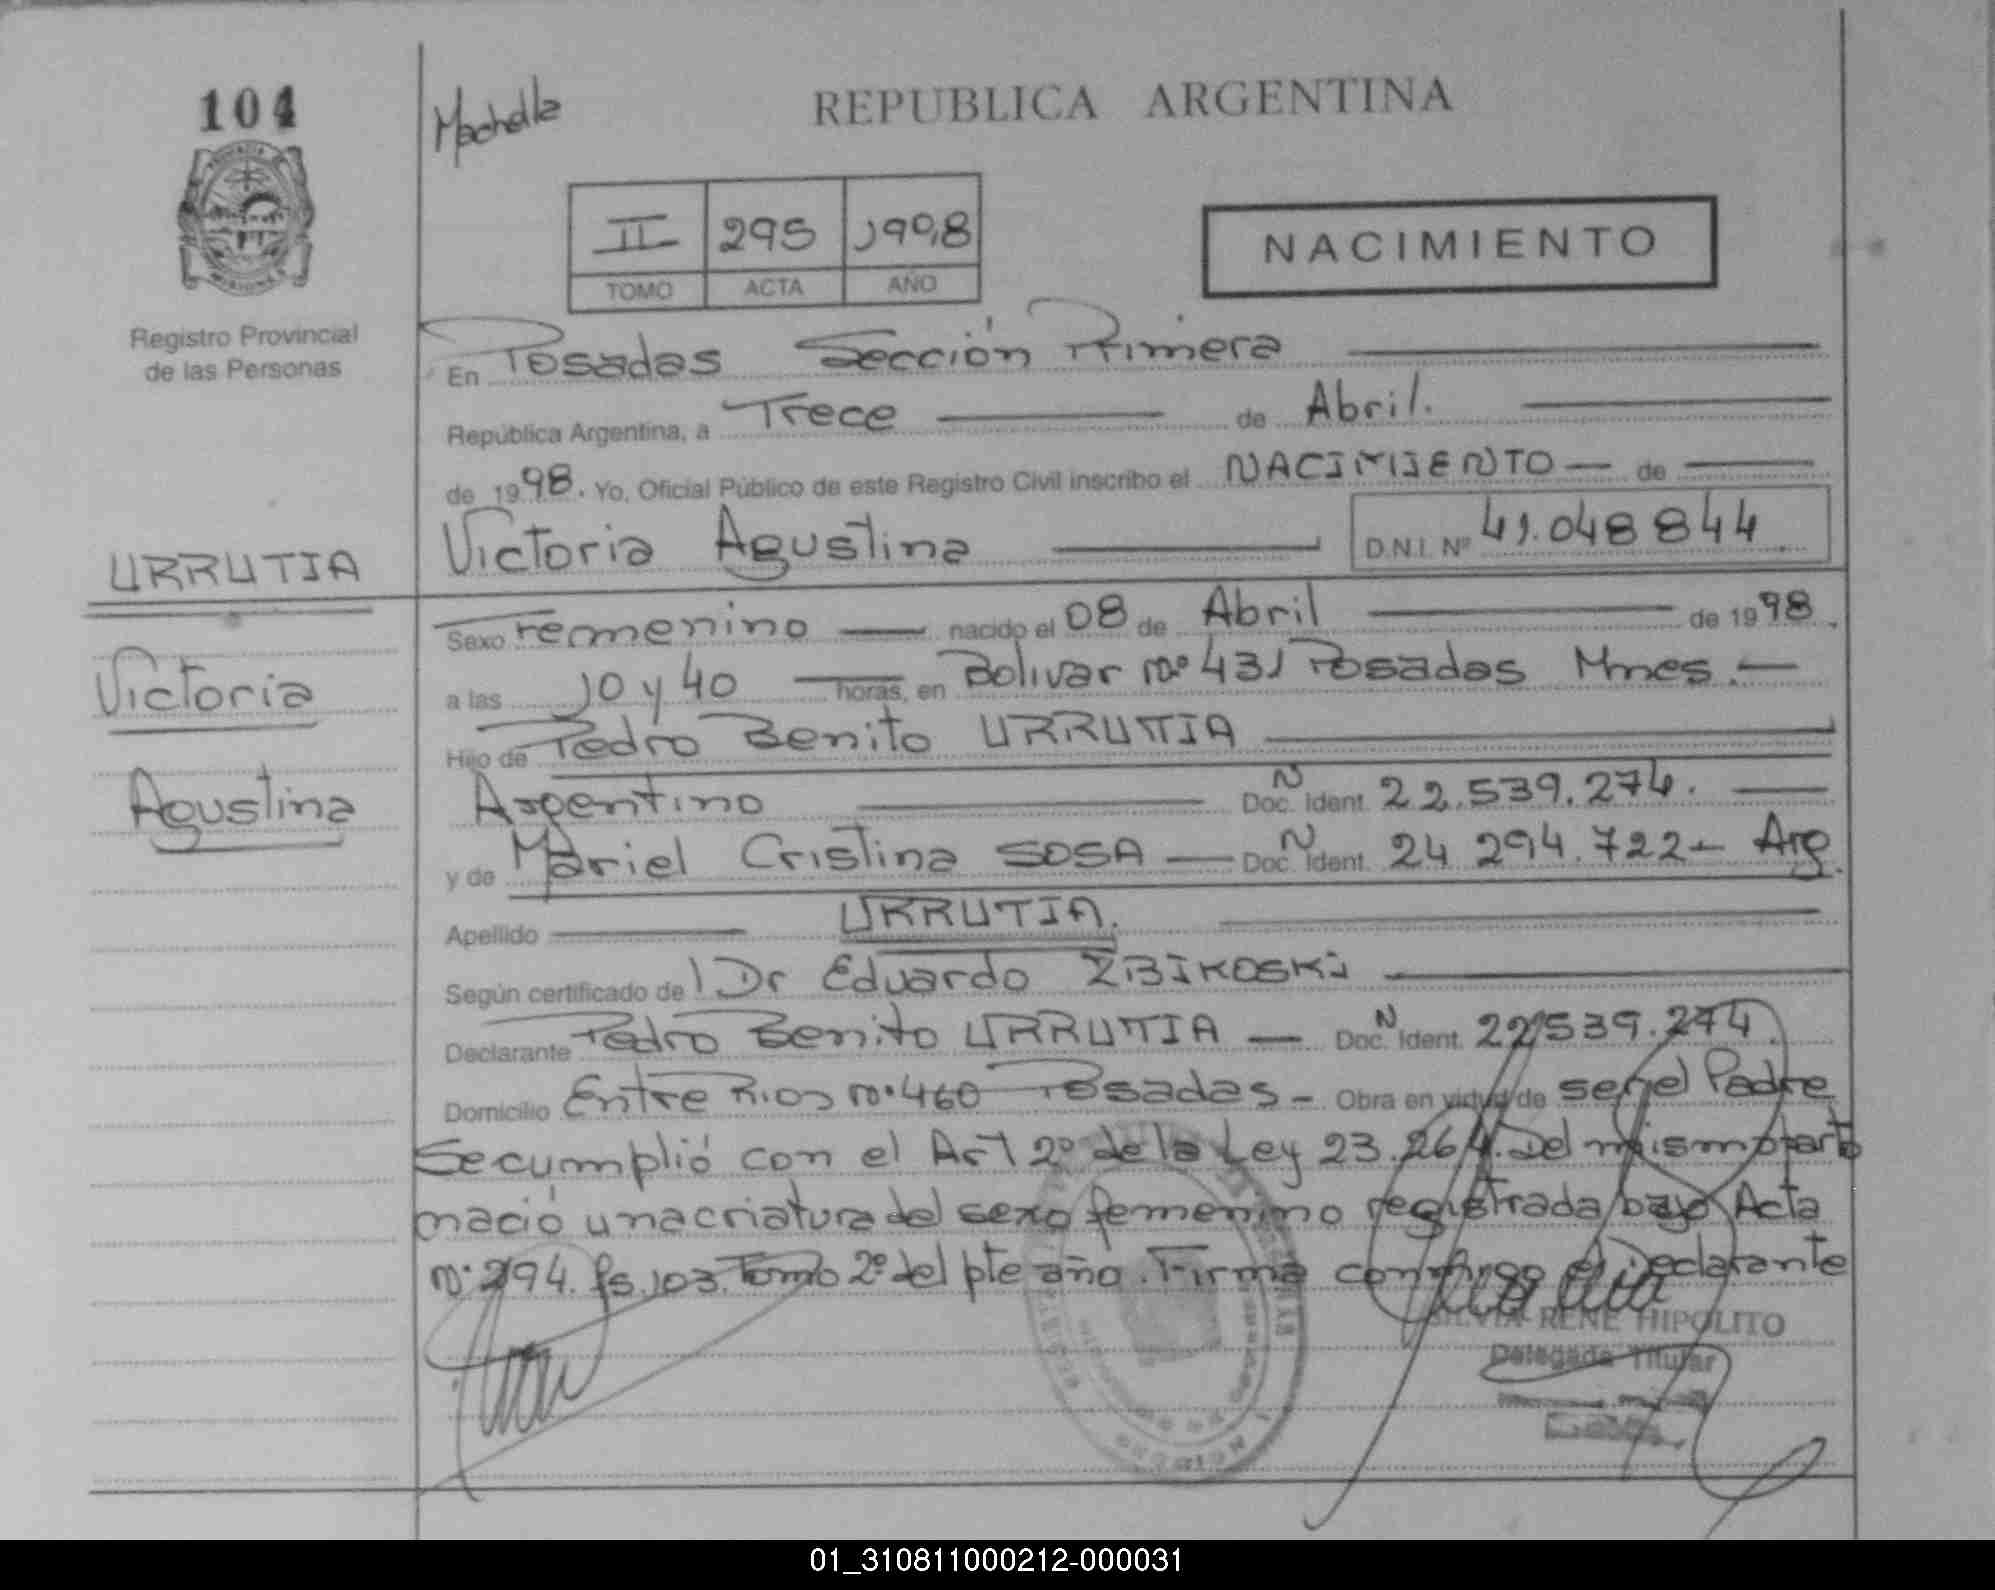 104
Machado
REPUBLICA ARGENTINA
II 295 1998
TOMO ACTA AÑO
NACIMIENTO
Registro Provincial
de las Personas
En Posadas Sección Primera
República Argentina, a Trece de Abril.
de 1998. Yo, Oficial Público de este Registro Civil inscribo el NACIMIENTO de
Victoria Agustina D.N.I. Nº 41.048844
URRUTIA
Victoria
Agustina
Sexo Femenino nacido el 08 de Abril de 1998.
a las 10 y 40 horas, en Bolivar Nº 431 Posadas Mnes.
Hijo de Pedro Benito URRUTIA
Argentino Doc. Ident. N 22.539.274.
y de Mariel Cristina SOSA Doc. Ident. N 24 294.722 - Arg.
Apellido URRUTIA.
Según certificado de Dr Eduardo ZBIKOSKI
Declarante Pedro Benito URRUTIA Doc. Ident. N 22539.274.
Domicilio Entre Rios Nº 460 Posadas - Obra en virtud de ser el Padre
Se cumplió con el Art 2º de la Ley 23.264. Del mismo parto
nació una criatura del sexo femenino registrada bajo Acta
Nº 294. fs. 103. Tomo 2º del pte año. Firma conmigo el Declarante
SILVIA RENE HIPOLITO
Delegada Titular
01_310811000212-000031